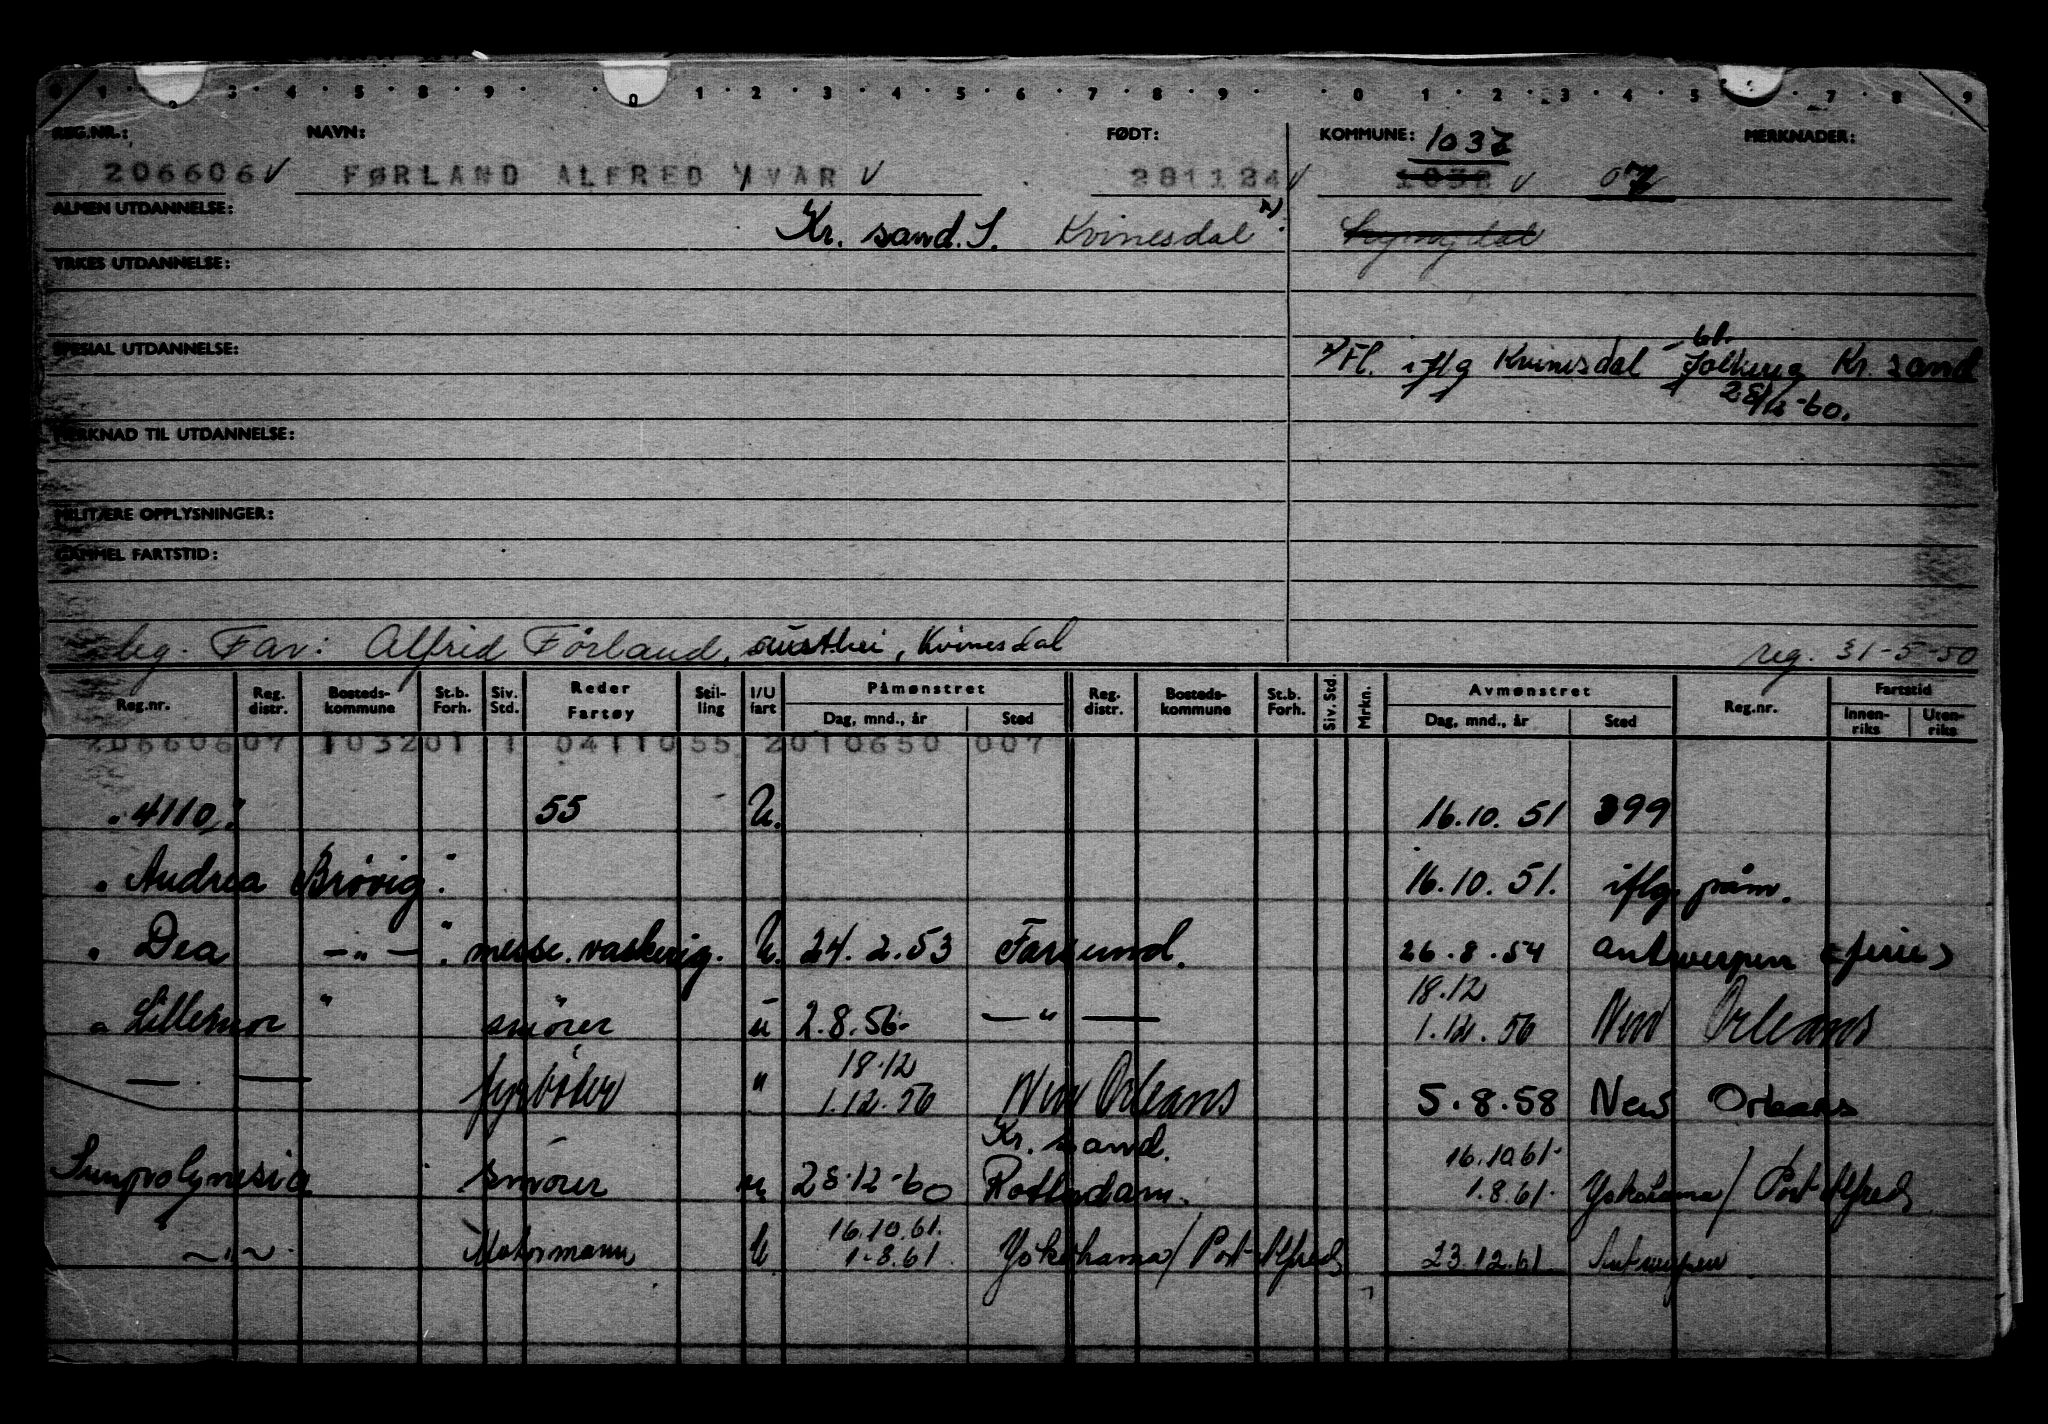 0 1 2 3 4 5 6 7 8 9 0 1 2 3 4 5 6 7 8 9 0 1 2 3 4 5 7 8 9
REG.NR.: NAVN: FØDT: KOMMUNE: 1037 MERKNADER:
206606 FØRLAND ALFRED YVAR 281124 1032 07
ALMEN UTDANNELSE: Kr. sand. S. Kvinesdal x) Lyngdal
YRKES UTDANNELSE:
SPESIAL UTDANNELSE: x) Fl. iflg Kvinesdal - folkereg Kr. sand
28/12-60.
MERKNAD TIL UTDANNELSE:
MILITÆRE OPPLYSNINGER:
GAMMEL FARTSTID:
beg. Far: Alfred Förland, Austhei, Kvinesdal reg. 31-5-50
Reg.nr. Reg. distr. Bosteds-kommune St.b. Forh. Siv. Std. Reder Fartøy Stil-ling I/U fart Påmønstret Dag, mnd., år Sted Reg. distr. Bosteds-kommune St.b. Forh. Siv. Std. Mrkn. Avmønstret Dag, mnd., år Sted Reg.nr. Fartstid Innen-riks Uten-riks
20660607 103201 1 0411055 2010650 007
" 4110 55 U. 16.10.51 399
" Andrea Brövig " 16.10.51. iflg. påm.
" Dea — " — " messe.vaskerig. U. 24.2.53 Farsund. 26.8.54 Antwerpen (ferie)
" Lillemor " smörer u 2.8.56 — " — 18.12
1.12.56 New Orleans
— — fyrböter " 18.12
1.12.56 New Orleans 5.8.58 New Orleans
Sunpolynesia smörer u 28-12-60 Kr. sand.
Rotterdam. 16.10.61.
1.8.61. Yokohama / Port Alfred
~ " ~ Motormann U 16.10.61.
1.8.61. Yokohama / Port Alfred 23.12.61. Antwerpen